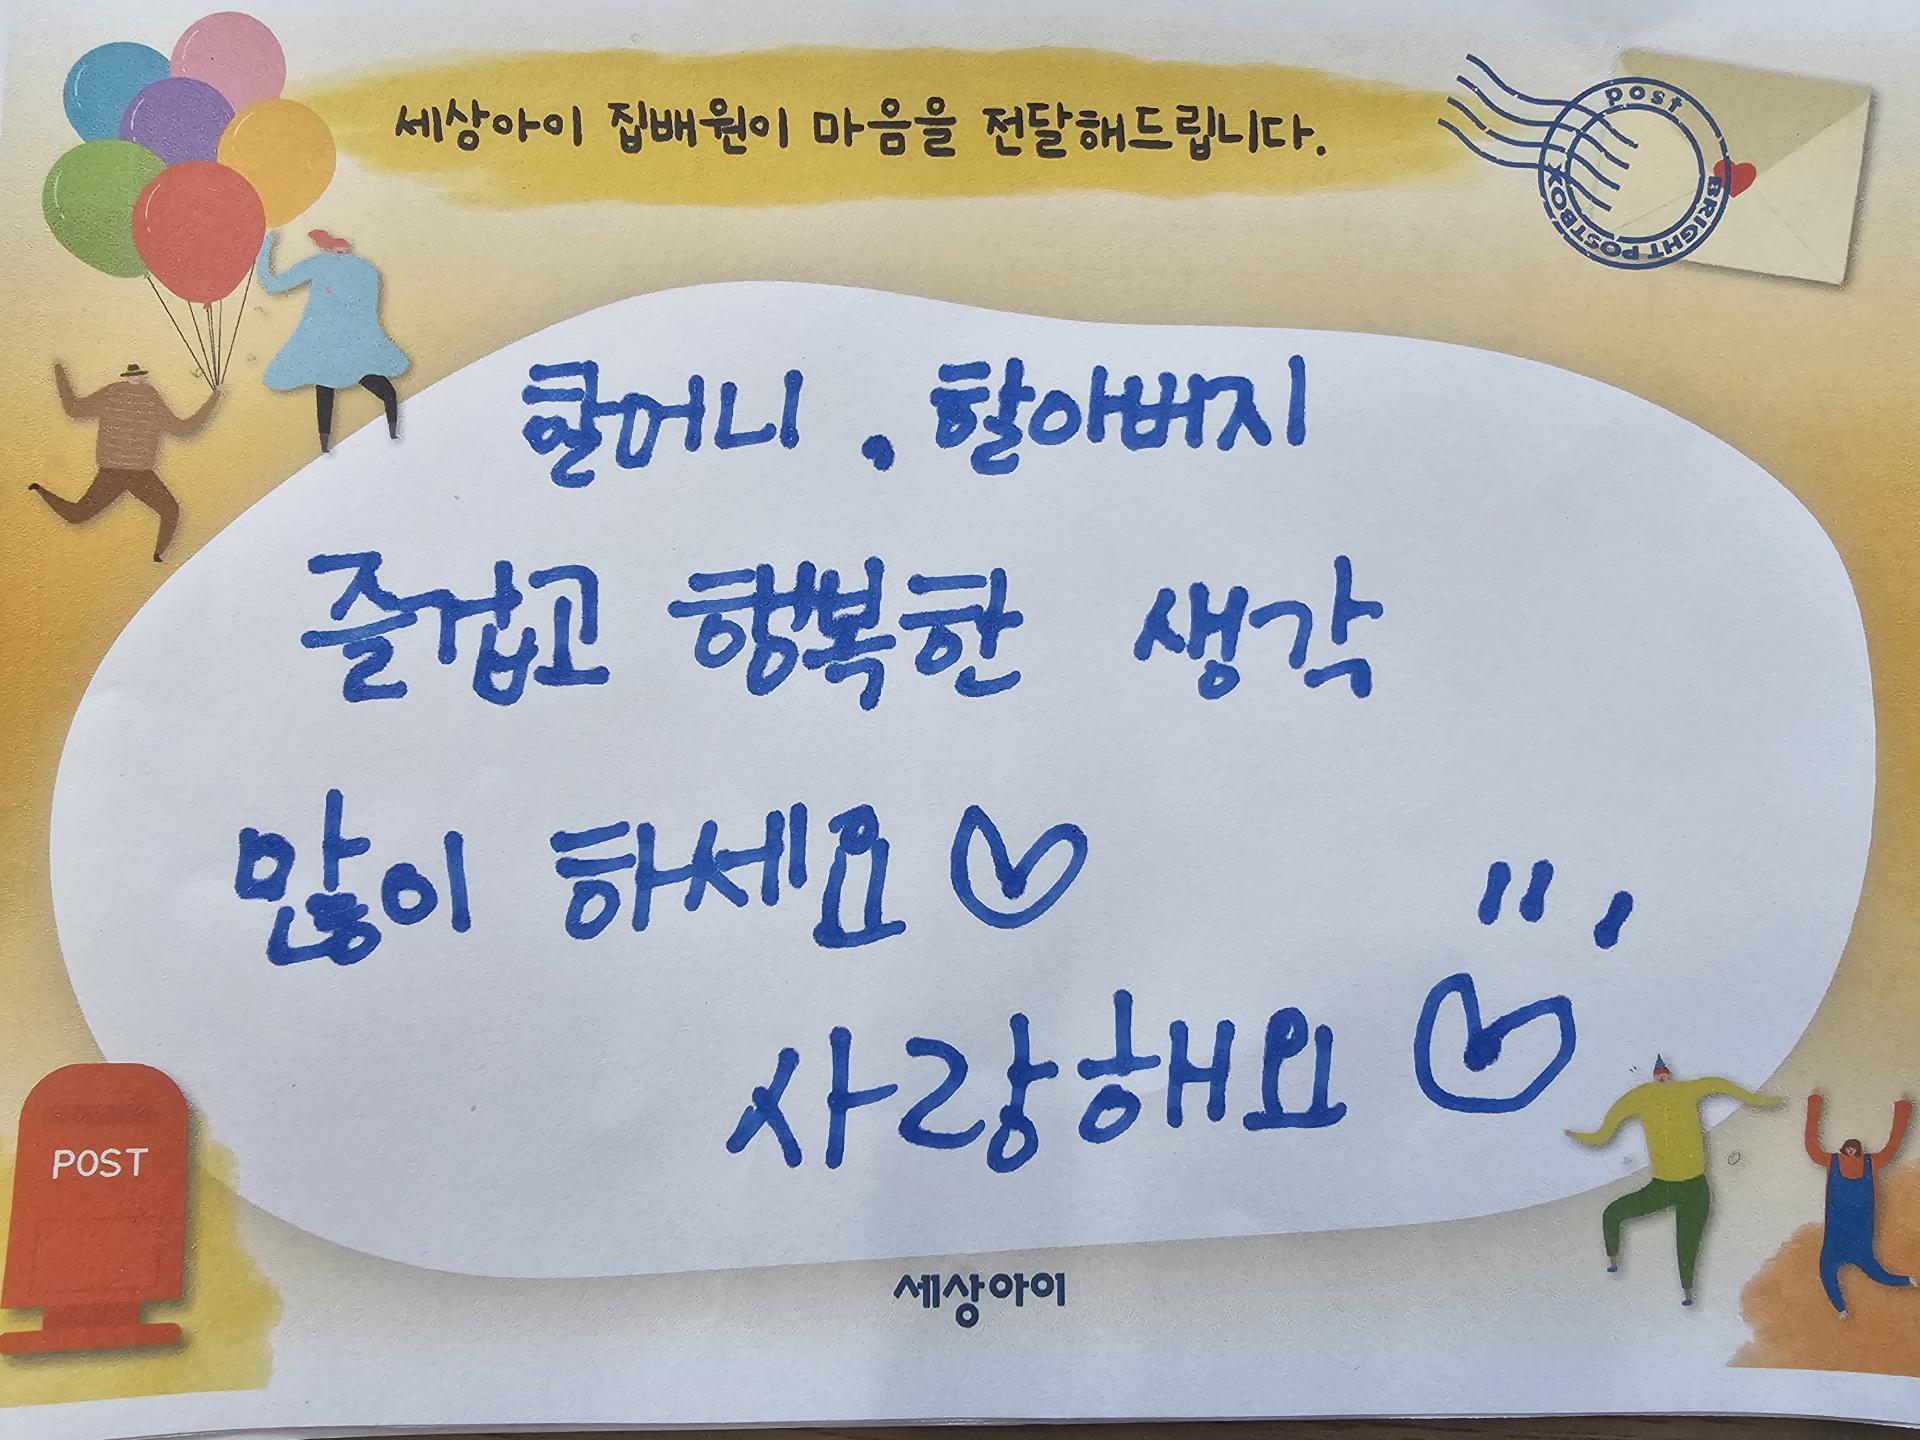 세상아이 집배원이 마음을 전달해드립니다.
post
BRIGHT POSTBOX
할머니, 할아버지
즐겁고 행복한 생각
많이 하세요♡
사랑해요♡
POST
세상아이